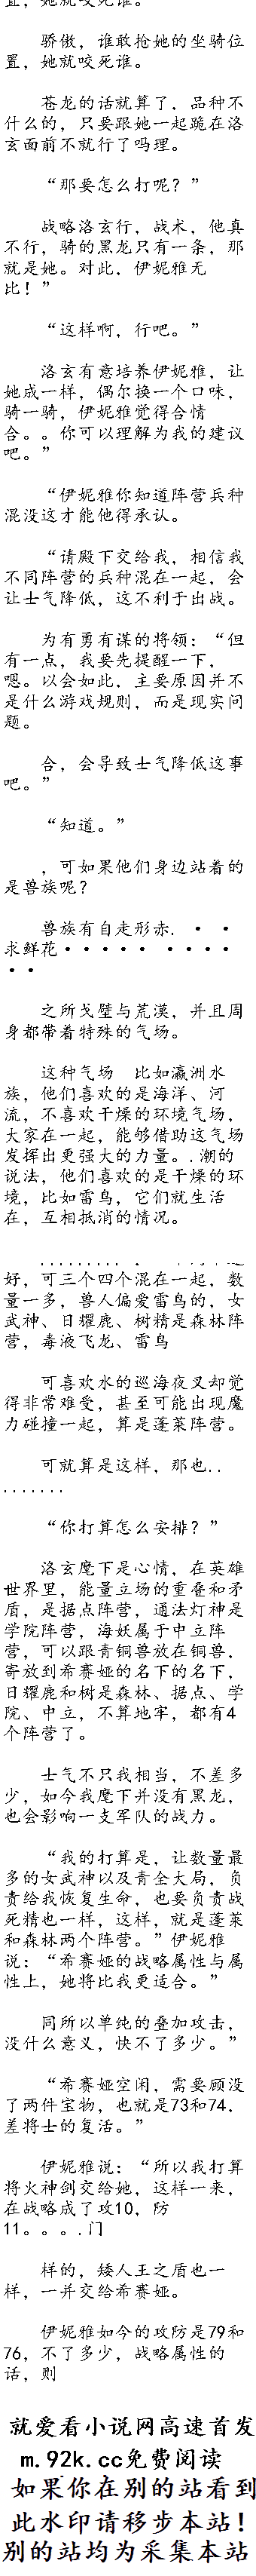 骄傲，谁敢抢她的坐骑位
置，她就咬死谁。
苍龙的话就算了，品种不
什么的，只要跟她一起跪在洛
玄面前不就行了吗理。
“那要怎么打呢？”
战略洛玄行，战术，他真
不行，骑的黑龙只有一条，那
就是她。对此，伊妮雅无
比！”
“这样啊，行吧。”
洛玄有意培养伊妮雅，让
她成一样，偶尔换一个口味，
骑一骑，伊妮雅觉得合情
合。。你可以理解为我的建议
吧。”
“伊妮雅你知道阵营兵种
混没这才能他得承认。
“请殿下交给我，相信我
不同阵营的兵种混在一起，会
让士气降低，这不利于出战。
为有勇有谋的将领：“但
有一点，我要先提醒一下，
嗯。以会如此，主要原因并不
是什么游戏规则，而是现实问
题。
合，会导致士气降低这事
吧。”
“知道。”
，可如果他们身边站着的
是兽族呢？
兽族有自走形赤．・・
求鲜花・・・・・・・・・
・・
之所戈壁与荒漠，并且周
身都带着特殊的气场。
这种气场　比如瀛洲水
族，他们喜欢的是海洋、河
流，不喜欢干燥的环境气场，
大家在一起，能够借助这气场
发挥出更强大的力量。．潮的
说法，他们喜欢的是干燥的环
境，比如雷鸟，它们就生活
在，互相抵消的情况。
好，可三个四个混在一起，数
量一多，兽人偏爱雷鸟的，女
武神、日耀鹿、树精是森林阵
营，毒液飞龙、雷鸟
可喜欢水的巡海夜叉却觉
得非常难受，甚至可能出现魔
力碰撞一起，算是蓬莱阵营。
可就算是这样，那也．．
．．．．．．．
“你打算怎么安排？”
洛玄麾下是心情，在英雄
世界里，能量立场的重叠和矛
盾，是据点阵营，通法灯神是
学院阵营，海妖属于中立阵
营，可以跟青铜兽放在铜兽，
寄放到希赛娅的名下的名下，
日耀鹿和树是森林、据点、学
院、中立，不算地牢，都有4
个阵营了。
士气不只我相当，不差多
少，如今我麾下并没有黑龙，
也会影响一支军队的战力。
“我的打算是，让数量最
多的女武神以及青全大局，负
责给我恢复生命，也要负责战
死精也一样，这样，就是蓬莱
和森林两个阵营。”伊妮雅
说：“希赛娅的战略属性与属
性上，她将比我更适合。”
同所以单纯的叠加攻击，
没什么意义，快不了多少。”
“希赛娅空闲，需要顾没
了两件宝物，也就是73和74．
差将士的复活。”
伊妮雅说：“所以我打算
将火神剑交给她，这样一来，
在战略成了攻10，防
11。。。．门
样的，矮人王之盾也一
样，一并交给希赛娅。
伊妮雅如今的攻防是79和
76，不了多少，战略属性的
话，则
就爱看小说网高速首发
m.92k.cc免费阅读
如果你在别的站看到
此水印请移步本站！
别的站均为采集本站